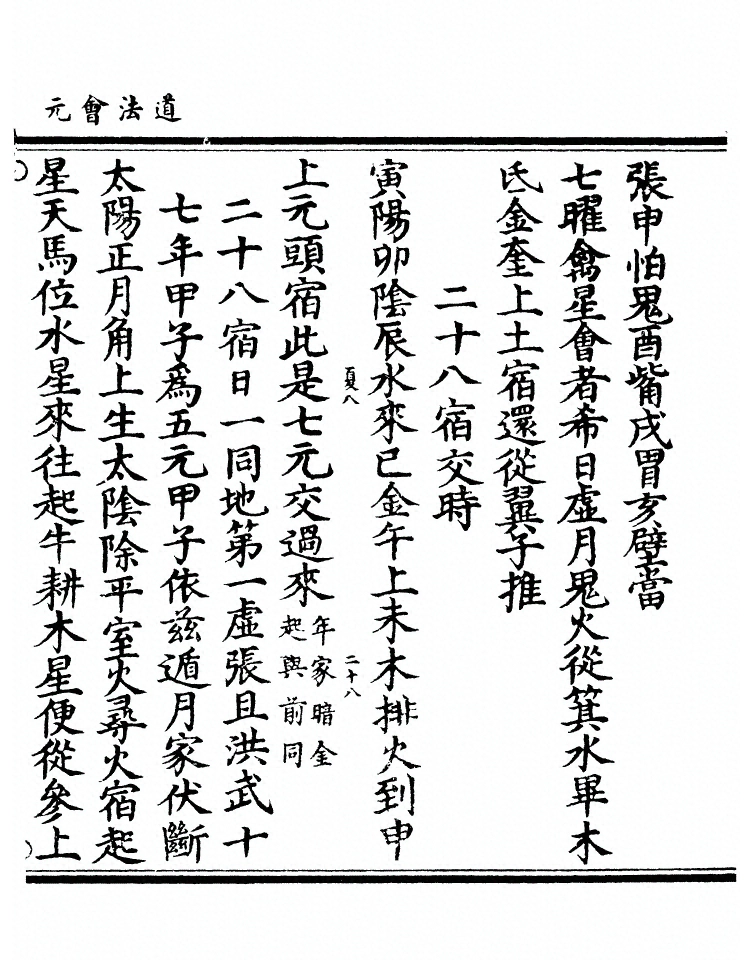 道法會元
張申怕鬼酉觜戌胃亥壁當
七曜禽星會者希日虛月鬼火從箕水畢木
氐金奎上土宿還從翼子推
二十八宿交時
寅陽卯陰辰水來巳金午上未木排火到申
夏八
二十八
上元頭宿此是七元交過來
年家暗金
起與前同
二十八宿日一同地第一虛張且洪武十
七年甲子爲五元甲子依兹遁月家伏斷
太陽正月角上生太陰除平室火尋火宿起
星天馬位水星來往起牛耕木星便從參上